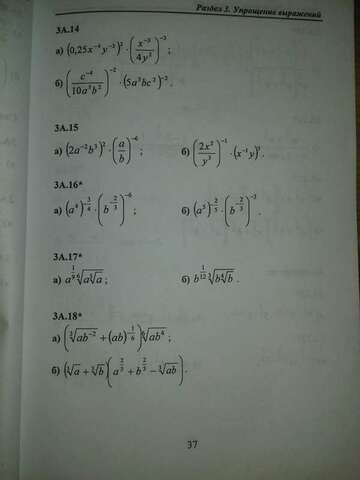 Раздел 3. Упрощение выражений
3А.14
а) (0,25x⁻⁴y⁻³)² · (x⁻³/4y²)⁻³ ;
б) (c⁻⁴/10a⁵b²)⁻² · (5a³bc²)⁻² .
3А.15
а) (2a⁻²b³)² · (a/b)⁻⁶ ;
б) (2x²/y³)⁻¹ · (x⁻¹y)³ .
3А.16*
а) (a⁴)^(-3/4) · (b^(-2/3))⁻⁶ ;
б) (a⁵)^(-2/5) · (b^(-2/3))⁻³ .
3А.17*
а) a^(1/9) ⁶√(a ³√a) ;
б) b^(1/12) ³√(b ⁴√b) .
3А.18*
а) (³√(ab⁻²) + (ab)^(-1/6)) ⁶√(ab⁴) ;
б) (³√a + ³√b)(a^(2/3) + b^(2/3) − ³√(ab)) .
37